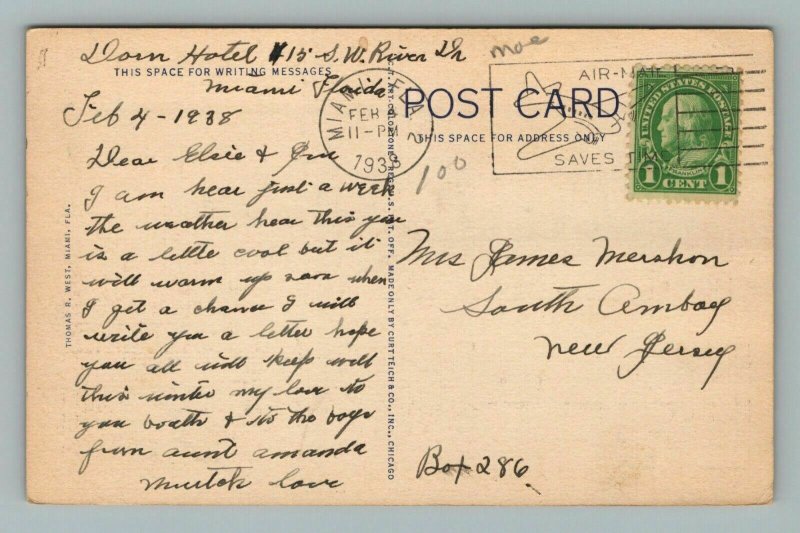 Dorn Hotel 415 S.W. River Dr
THIS SPACE FOR WRITING MESSAGES
Miami Floida
Feb 4-1938
Dear Elsie & Jim
I am hear just a week
the weather hear this year
is a little cool but it
will warm up soon when
I get a chance I will
write you a letter hope
you all will keep well
this winter my love to
you boath & to the boys
from aunt amanda
mutch love
THOMAS R. WEST, MIAMI, FLA.
MADE ONLY BY CURT TEICH & CO., INC., CHICAGO
moe
POST CARD
THIS SPACE FOR ADDRESS ONLY
100
MIAMI
FEB 4
11-PM
1938
AIR-MAIL
SAVES TIME
UNITED STATES POSTAGE
FRANKLIN
1 CENT 1
Mrs James Mershon
South Amboy
New Jersey
Box 286